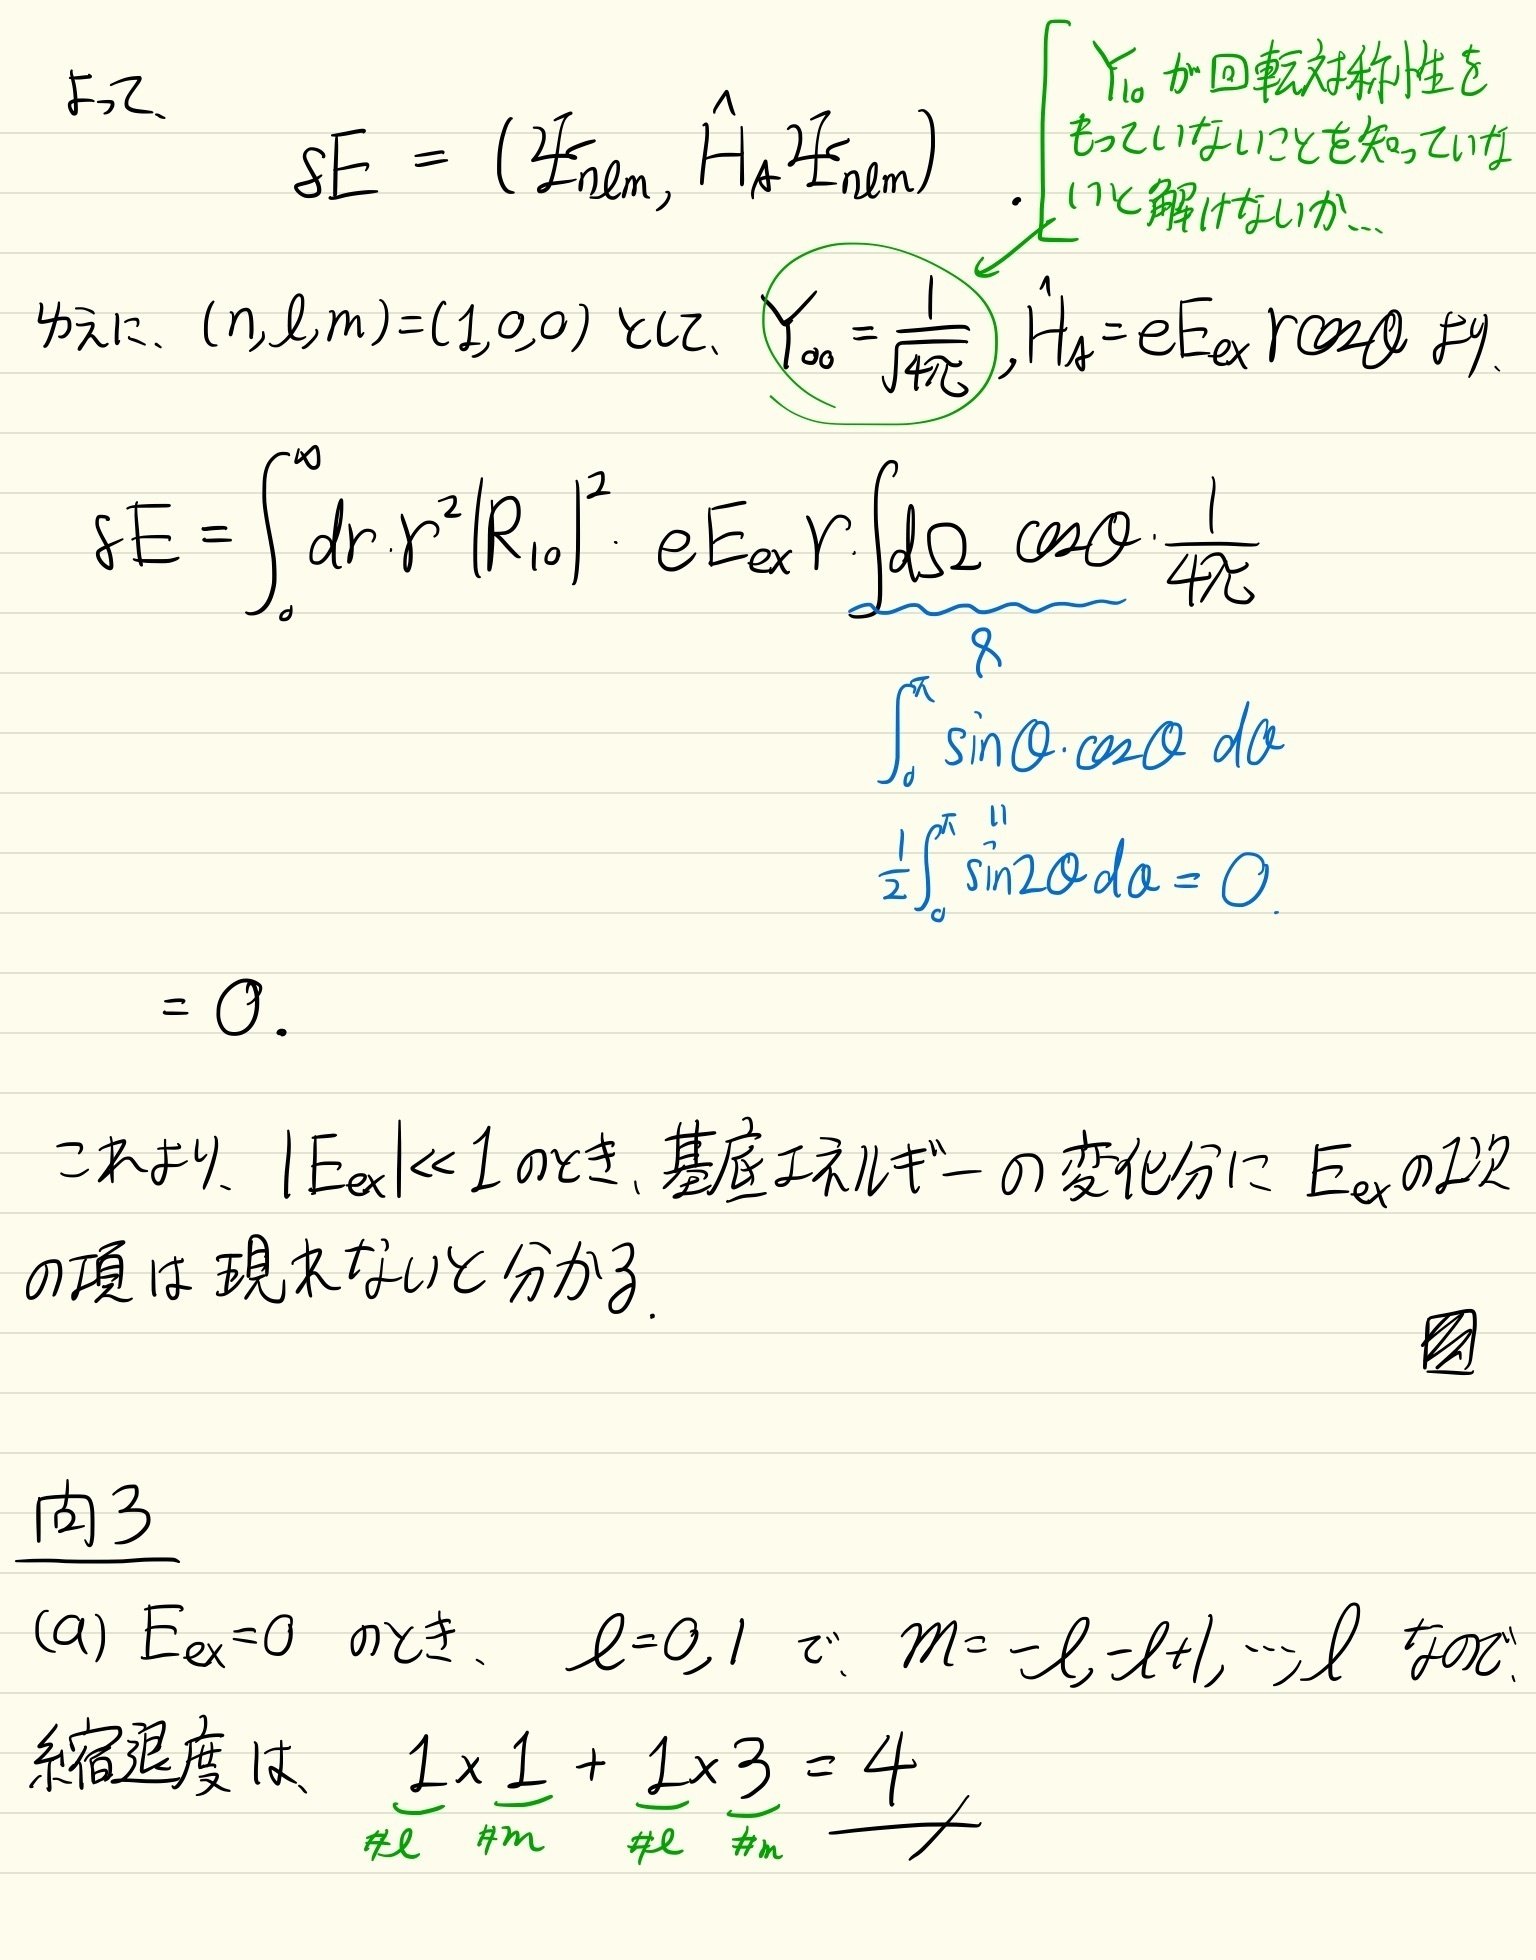 よって、
δE = (Ψnlm, ĤA Ψnlm).
Y10 が回転対称性を
もっていないことを知っていな
いと解けないか...
ゆえに、(n,l,m)=(1,0,0) として、Y00 = 1/√4π, ĤA = eEex rcosθ より、
δE = ∫0^∞ dr・r²|R10|²・eEex r・∫dΩ cosθ・1/4π
∝
∫0^π sinθ・cosθ dθ
=
1/2 ∫0^π sin2θ dθ = 0.
= 0.
これより、|Eex| ≪ 1 のとき、基底エネルギーの変化分に Eex の1次
の項は現れないと分かる.
問3
(a) Eex=0 のとき、 l=0,1 で、 m= -l, -l+1, …, l なので、
縮退度は、 1×1 + 1×3 = 4
#l #m #l #m